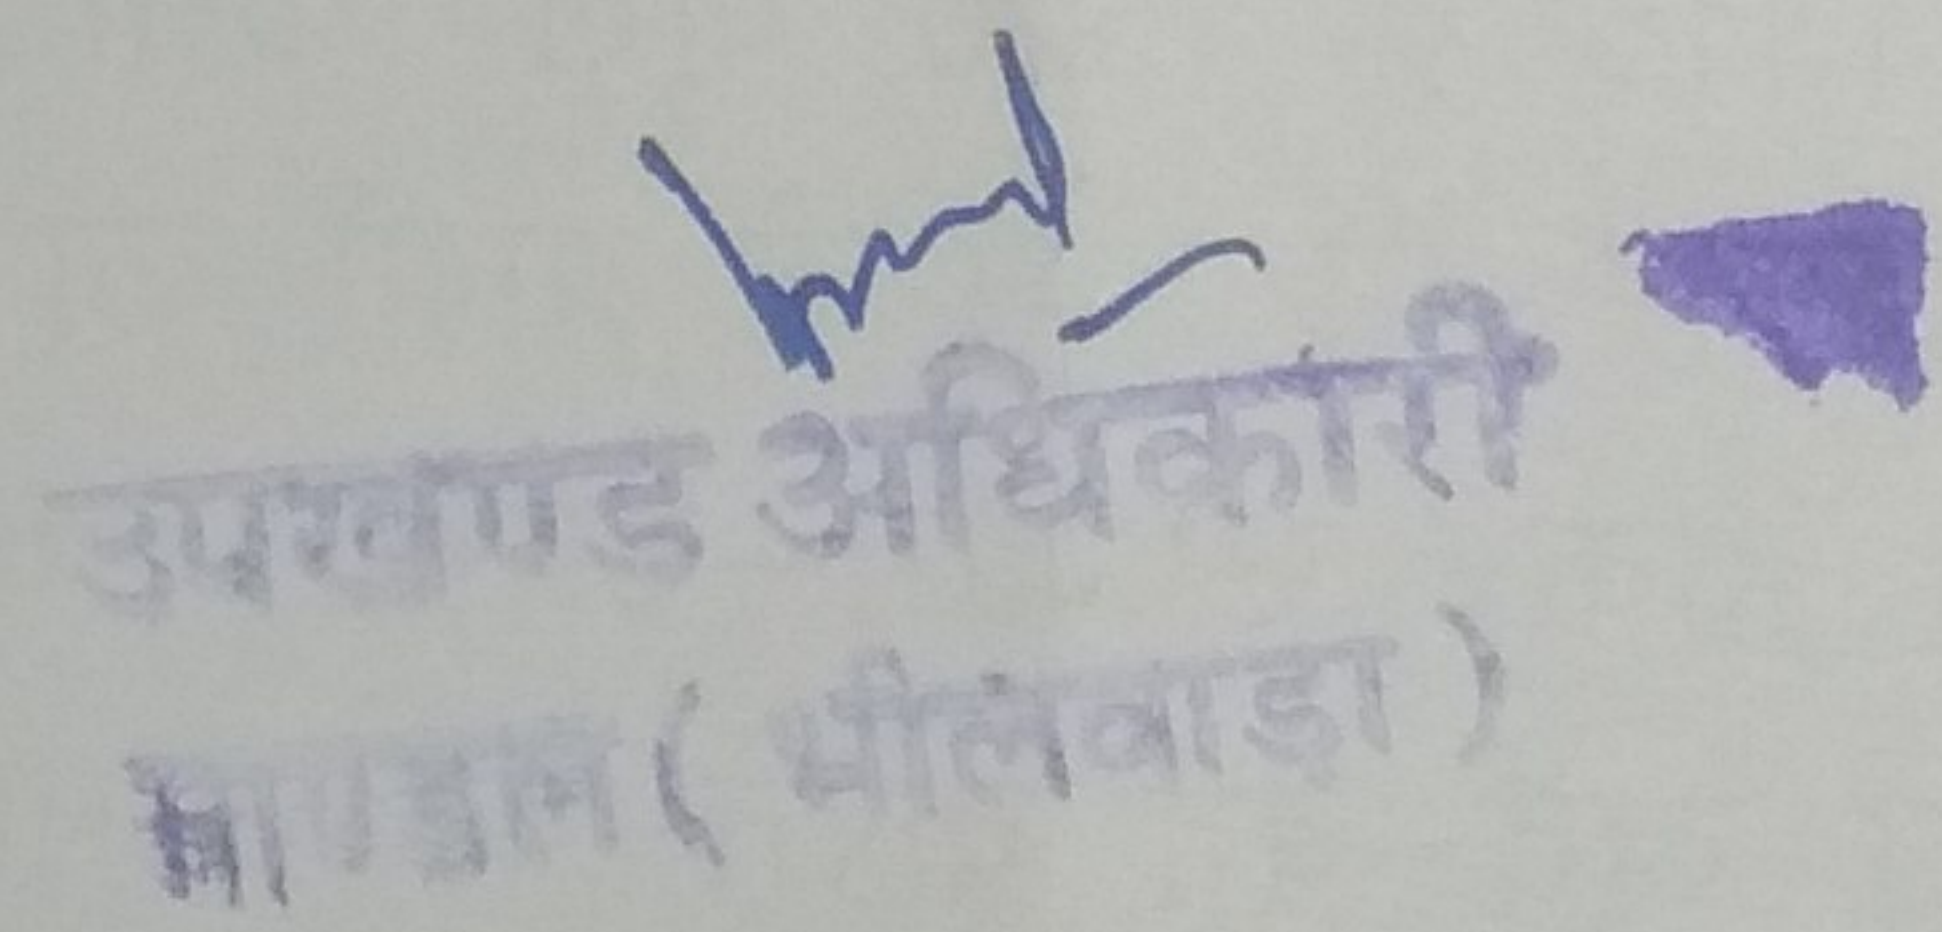 उपखण्ड अधिकारी
माण्डल ( भीलवाड़ा )